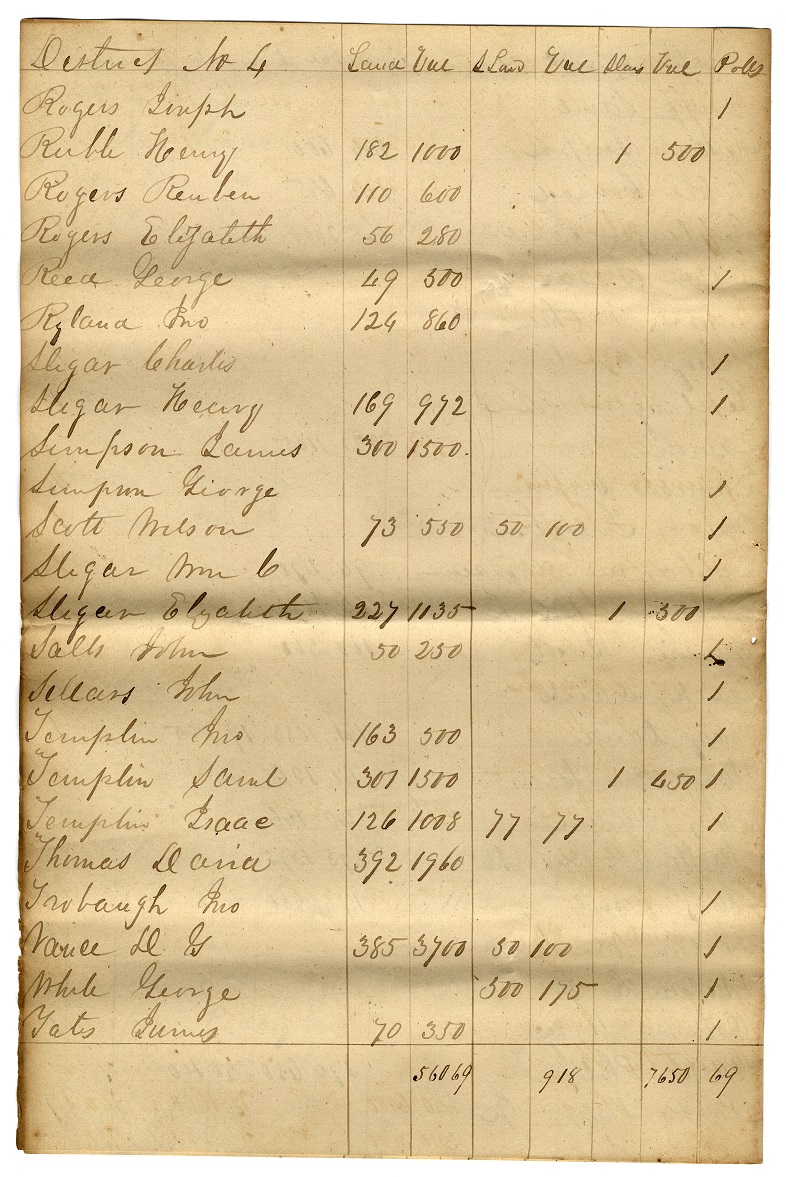 District No 4 Land Val S Land Val Slav Val Polls
Rogers Joseph 1
Ruble Henry 182 1000 1 500
Rogers Reuben 110 600
Rogers Elizabeth 56 280
Reed George 49 300 1
Ryland Jno 124 860
Sligar Charles 1
Sligar Henry 169 972 1
Simpson James 300 1500
Simpson George 1
Scott Wilson 73 550 50 100 1
Sligar Wm C 1
Sligar Elizabeth 227 1135 1 300
Salts John 50 250
Sellars John 1
Templin Jno 163 500 1
Templin Saml 301 1500 1 450 1
Templin Isaac 126 1008 77 77 1
Thomas David 392 1960
Trobaugh Jno 1
Vance D G 385 3700 50 100 1
White George 300 175 1
Yates James 70 350 1
56069 918 7650 69